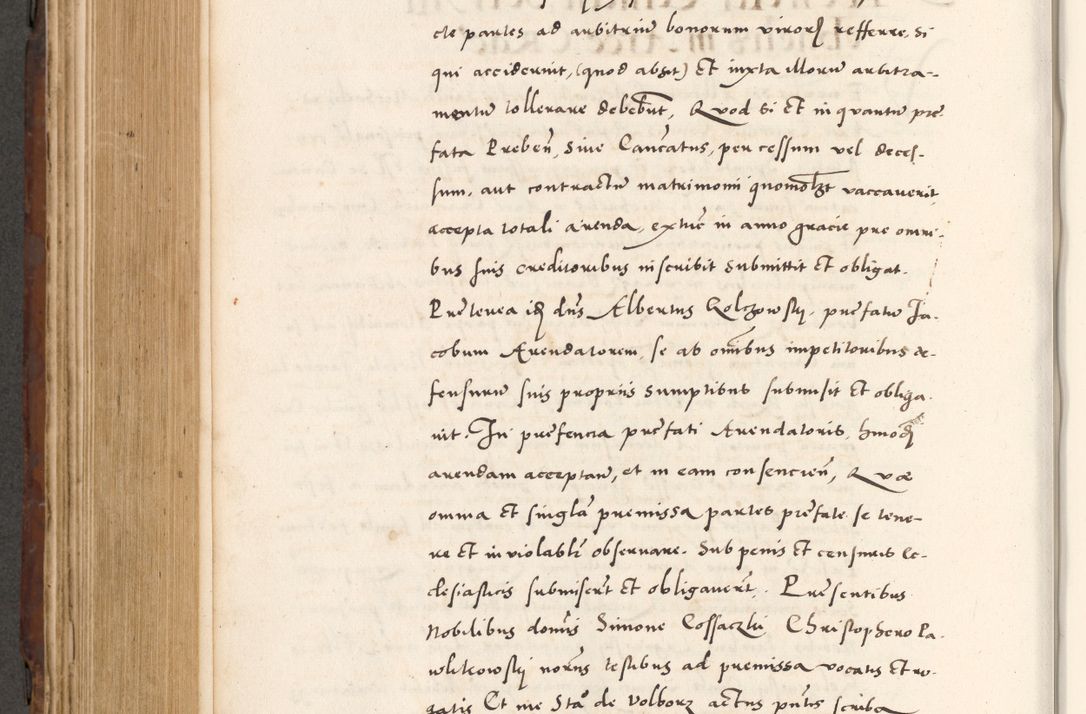 cte partes ad arbitriũ bonorum virorȝ refferre, si
qui acciderint, (quod absit) et iuxta illorũ arbitra-
mentũ tollerare debebũt, Quod si et in quantũ pre
fata Prebeñ, Siue Cancatus, per cessum vel deces-
sum, aut contractũ matrimonii quomolȝt vaccauerit
accepta totali arenda, extũc in anno gracie pre omni-
bus suis creditoribus inscribit submittit et obligat.
Preterea idȝ dñs Albertus Golczowsky, prefatũ Ja-
cobum Arendatorem, se ab omĩbus impetitoribus de-
fensurũ suis propriis sumptibus submisit et obliga-
uit. In presencia prefati Arendatoris, hmodȝ
arendam acceptañ, et in eam consencieñ, Quæ
omnia et singla premissa partes prefate se tene-
re et inuiolabli obseruare. Sub penis et censuris Ec-
clesiasticis submiserũt et obligauerũt. Presentibus
Nobilibus domĩs Simone Cossaczki Christophero Pa-
wlikowsky norũs testibus ad premissa vocatis et ro-
gatis Et me Sta° de Volborz actus pñtis scriba